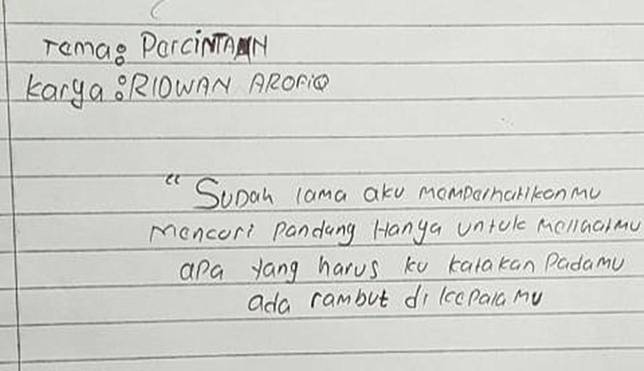 Tema: PerciNTAAN
Karya: RIDWAN AROFIQ
"Sudah lama aku memperhatikanmu
Mencuri Pandang Hanya untuk melihatmu
apa yang harus ku katakan Padamu
ada rambut di kepala mu